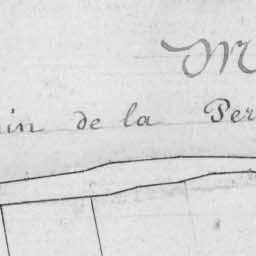 M
in de la Per